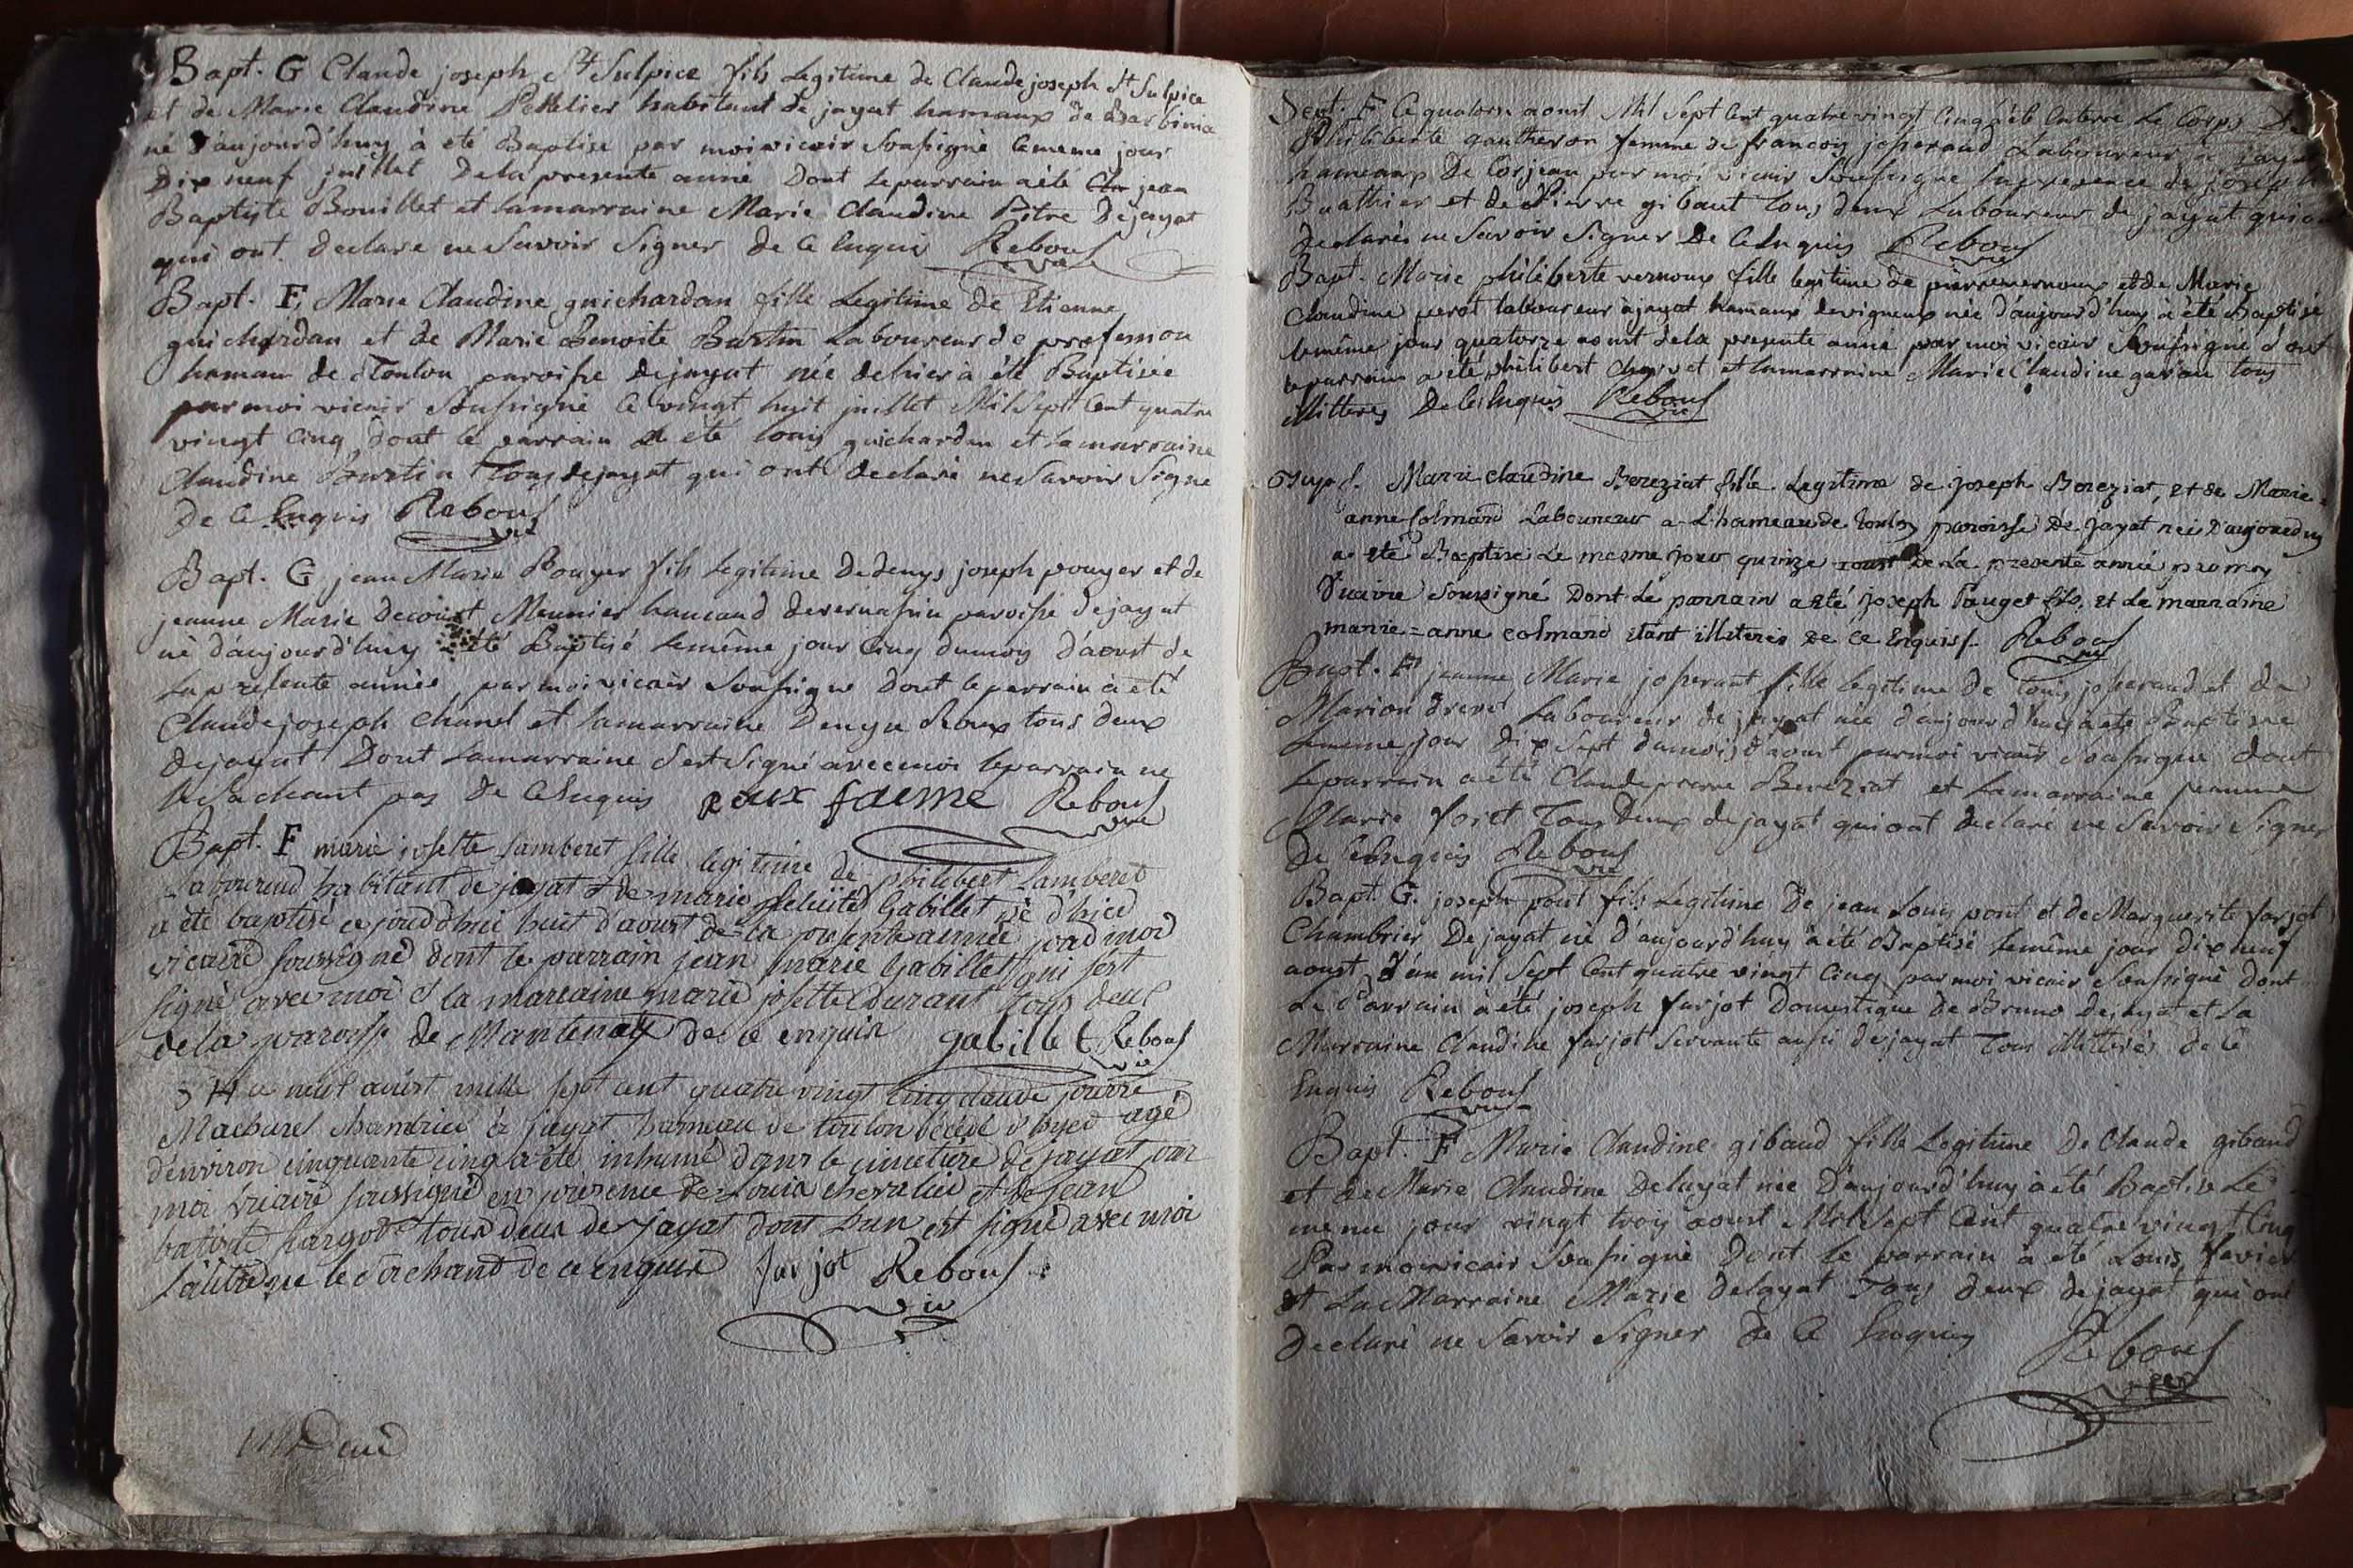 Bapt. G Claude joseph St Sulpice fils Legitime de Claude joseph St Sulpice
et de Marie Claudine Pelletier habitant de jayat hamaux de
né d'aujourd'huy à eté Baptise par moi vicair Sousigné lememe jour
Dix neuf juillet De la presente anné Dont le parrain a été jean
Baptiste Bouillet et lamarraine Marie Claudine Pitre Dejayat
qui ont declare ne Savoir Signer de Ce Enquis Rebouf vic
Bapt. F Marie Claudine guichardan fille Legitime De Etienne
guichardan et de Marie Benoite Burtin Laboureur de profession
hamau de Toulon paroisse dejayat née dehier à été Baptisée
par moi vicair Sousigné Ce vingt huit juillet Mil Sept Cent quatre
vingt Cinq dont le parrain a été louis guichardan et lamarraine
Claudine Burtin Tous dejayat qui ont declaré ne Savoir Signe
De Ce Enquis Rebouf vic
Bapt. G jean Marie Pouger fils Legitime De denys joseph pouger et de
jeanne Marie decourt Meunier paroisse dejayat
né d'aujourd'huy été Baptisé lemême jour Cinq dumois d'aoust de
La presente année, par moi vicair Sousigne dont le parrain à été
Claude joseph Chanel et lamarraine Denyse Roux tous deux
dejayat Dont Lamarraine S'est Signé avec moi leparrain ne
le Sachant pas De Ce Enquis roux fame Rebouf vic
Bapt. F marie josette Lamberet fille legitime de philibert Lamberet
Laboureud habitant de jayat & de marie Gabillet né d'hied
a été baptisé ce jourd'hui huit d'aoust de la presente année pard moi
vicaire soussigné dont le parrain jean marie Gabillet qui s'est
signé avec moi & la marraine marie josette Durant tous deux
de la paroisse de Mantenay de ce enquis gabillet Rebouf vic
ce neuf aoust mille sept cent quatre vingt cinq claude pierre
Machurel chambrier à jayat hameau de toulon décédé d'hyed agé
d'environ cinquante cinq a été inhumé dans le cimetiere de jayat par
moi vicaire soussigné en presence de Louis chevalier et de jean
batiste fargot tous deux de jayat dont l'un est signé avec moi
l'autre ne le sachant de ce enquis farjot Rebouf vic
Sept. F Ce quatorze aoust Mil Sept Cent quatre vingt Cinq à été Enterré Le Corps De
Philiberte gautheron femme de francois josserand Laboureur à jayat
hameaux De Corjean par moi vicair Sousigné En presence de joseph
Buathier et de Pierre gibaut tous deux Laboureur de jayat qui ont
declarés ne Savoir Signer De Ce Enquis Rebouf vic
Bapt. Marie philiberte vernoux fille legitime de pierre vernoux et de Marie
Claudine perot laboureur à jayat hamaux devigneux née d'aujourd'huy à été Baptisé
lemême jour quatorze aoust de la presente année par moi vicair Sousigné dont
le parrain a été philibert et lamarraine Marie Claudine tous
illitteres De Ce Enquis Rebouf vic
Marie claudine Bereziat fille Legitime de joseph Bereziat, et de Marie=
anne Colmard Laboureur a L'hameau de toulon paroisse De jayat neé D'aujourduy
a eté Baptisé Le mesme jour quinze aoust de La presente anneé par moy
Vicaire Soussigné Dont Le parrain a eté joseph Pauget fils, et La marraine
marie=anne colmard etant illiterés de ce Enquis. Rebouf vic
Bapt. F jeanne Marie josserant fille legitime de louis josserand et de
Marion drevet Laboureur dejayat née d'aujourd'huy à été Baptisée
lememe jour dix Sept dumois d'aoust par moi vicair Sousigné dont
le parrain a été Claude pierre Bereziat et Lamarraine jeanne
Marie foret Tous Deux dejayat qui ont declaré ne Savoir Signer
De Ce Enquis Rebouf vic
Bapt. G. joseph pont fils Legitime De jean Louis pont et de Marguerite farjot
Chambrier De jayat né d'aujourd'huy à été Baptisé lemême jour dix neuf
aoust d'an mil Sept Cent quatre vingt Cinq par moi vicair Sousigné dont
Le Parrain à été joseph farjot Domestique De Bruno dejayat et La
Marraine Claudine farjot Servante aussi dejayat Tous illitterés de Ce
Enquis Rebouf vic
Bapt. F Marie Claudine gibaud fille Legitime De Claude gibaud
et de Marie Claudine Delayat née D'aujourd'huy à été Baptise Le
meme jour vingt trois aoust Mil Sept Cent quatre vingt Cinq
Par moi vicair Sousigné Dont le parrain à été Louis favier
et La Marraine Marie Delayat Tous deux dejayat qui ont
Declaré ne Savoir Signer De Ce Enquis Rebouf